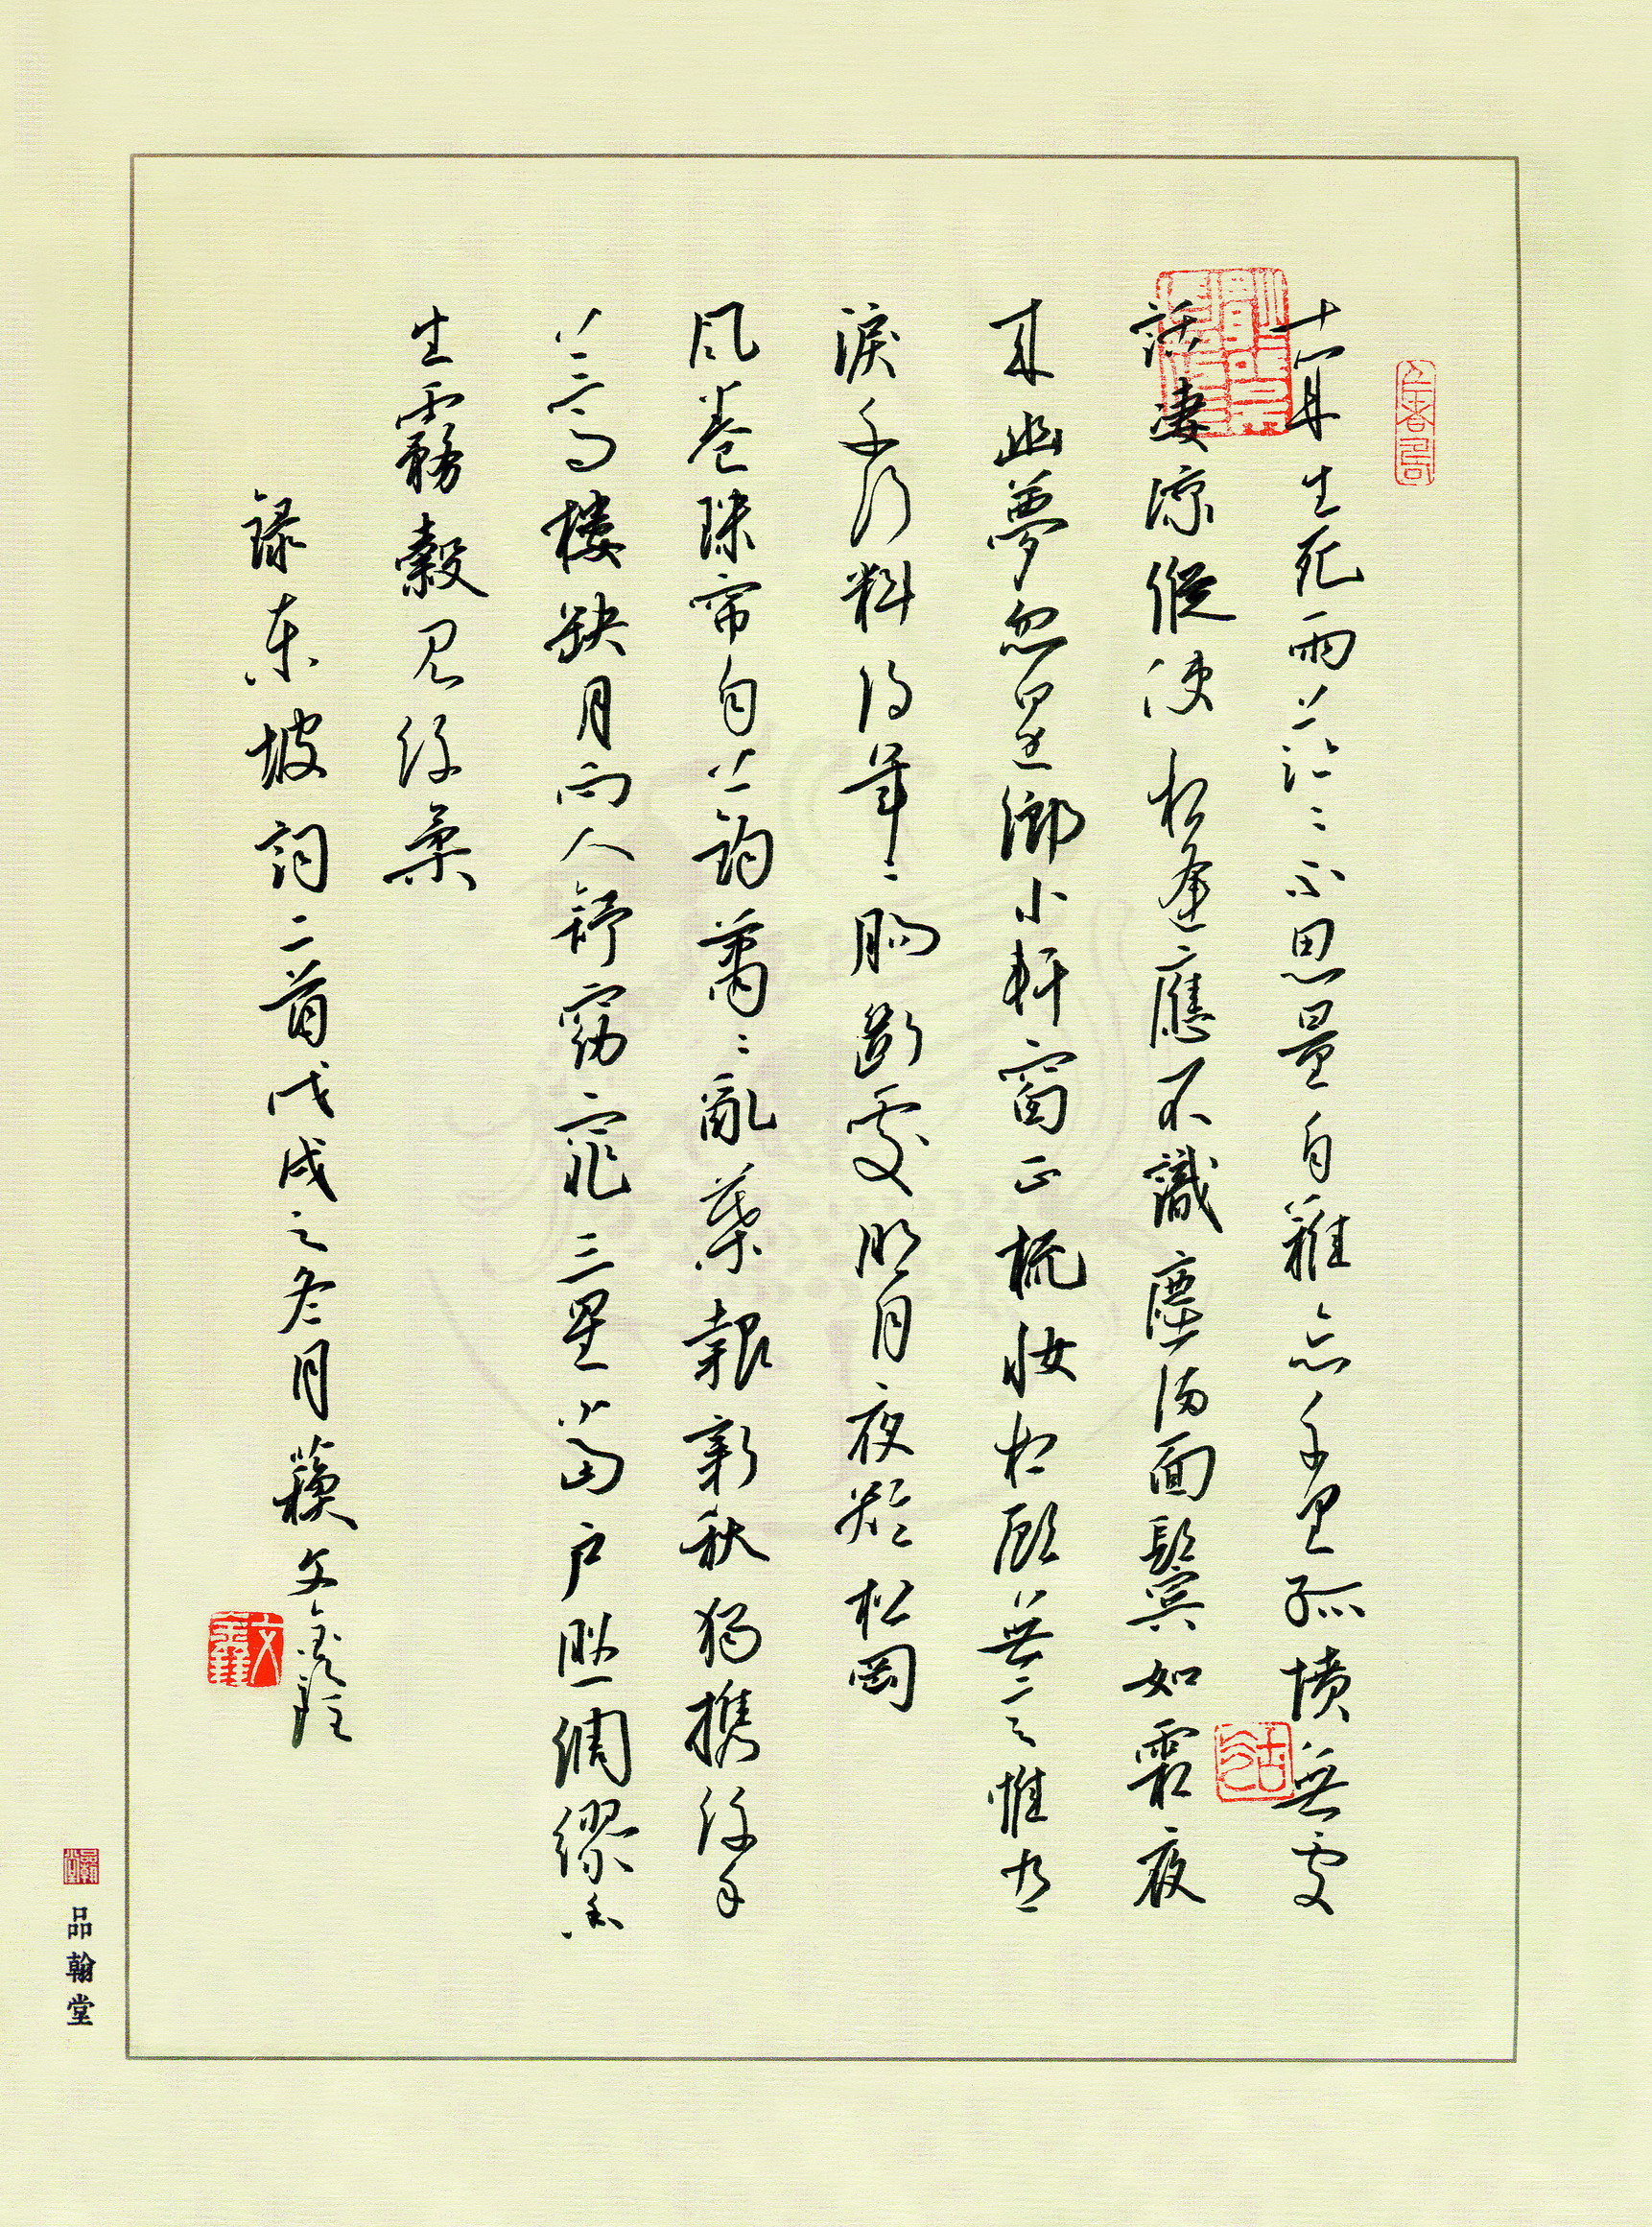 十年生死兩茫々不思量自難忘千里孤墳無處
話淒涼縱使相逢應不識塵滿面鬢如霜夜
來幽夢忽還鄉小軒窗正梳妝相顧無言惟有
淚千行料得年々腸斷處明月夜短松岡
風卷珠簾自上鉤蕭々亂葉報新秋獨攜纖手
上高樓缺月向人舒窈窕三星當戶照綢繆香
生霧縠見纖柔
錄東坡詞二首戊戌之冬月蘇文
品翰堂